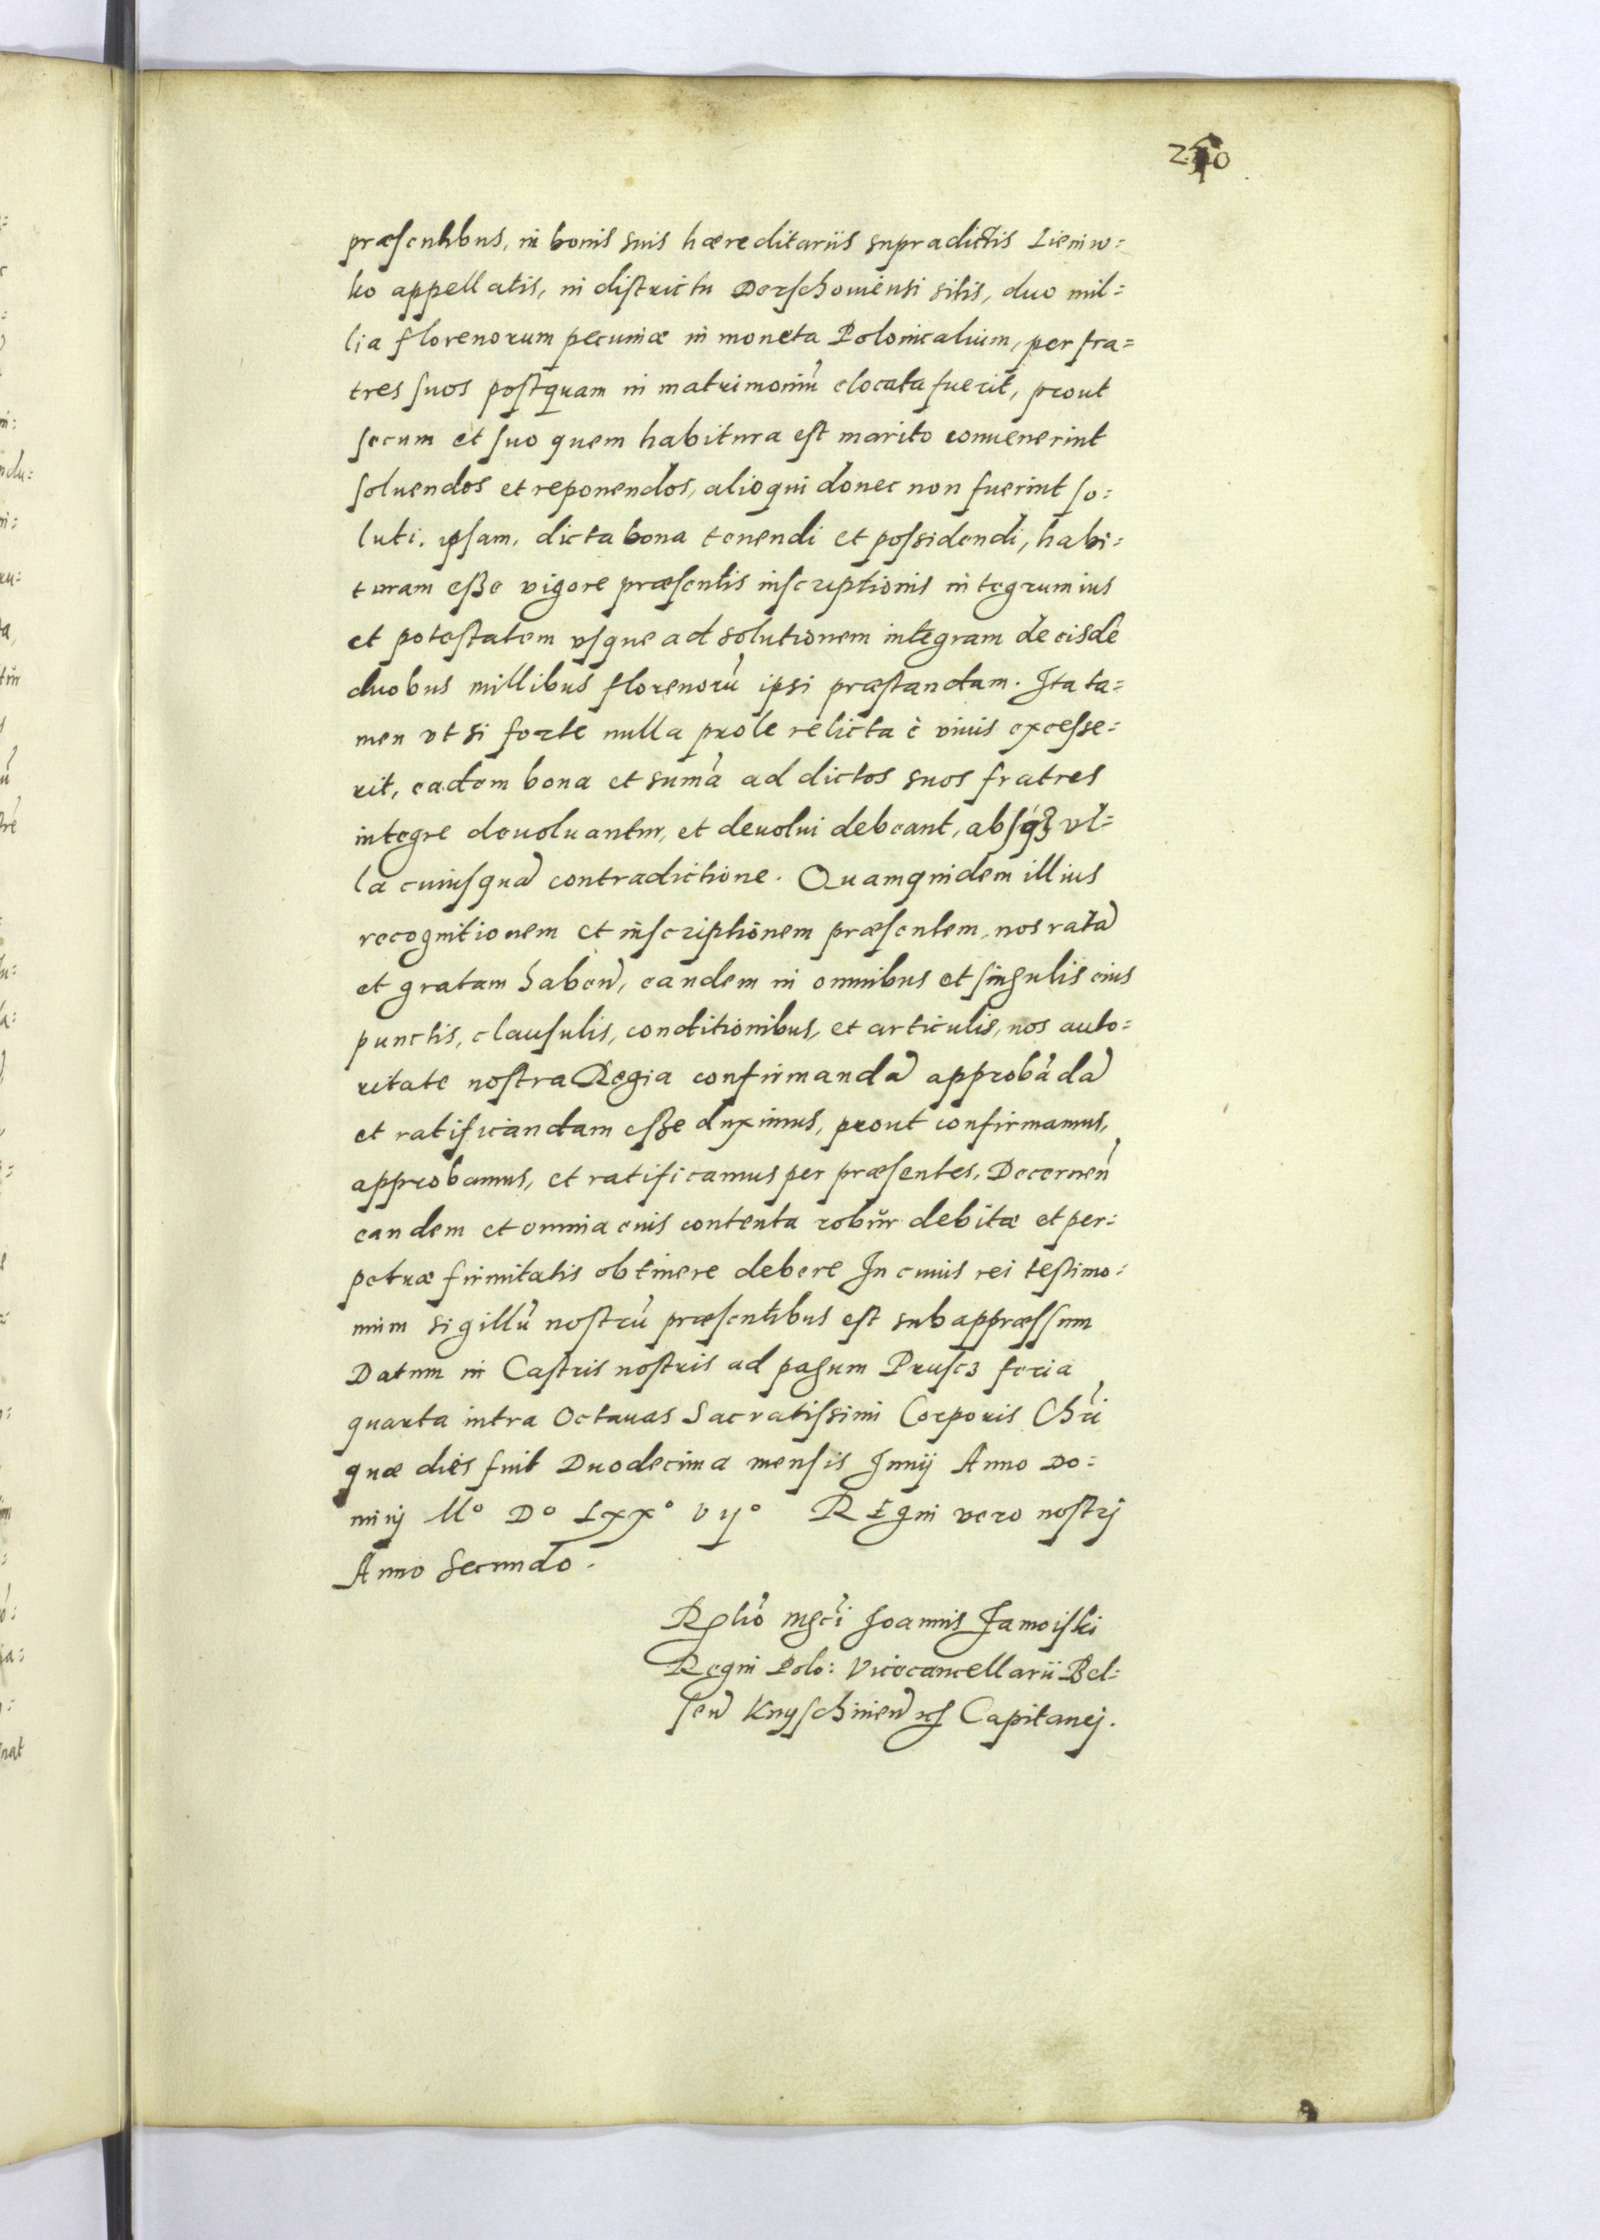 præsentibus, in bonis suis hæreditariis supradictis Lieniw=
ko appellatis, in districtu Derschoviensi sitis, duo mil=
lia florenorum pecuniæ in moneta Polonicalium, per fra=
tres suos postquam in matrimoniu̇ elocata fuerit, prout
secum et suo quem habitura est marito convenerint
soluendos et reponendos, alioqui donec non fuerint so=
luti, ipsam, dicta bona tenendi et possidendi, habi=
turam esse vigore præsentis inscriptionis integrum ius
et potestatem vsque ad solutionem integram de eisdē
duobus millibus florenorū ipsi præstandam. Ita ta=
men vt si forte nulla prole relicta è viuis excesse=
rit, eadem bona et sumā ad dictos suos fratres
integre deuoluantur, et deuolui debeant, absq3 vl=
la cuiusquā contradictione. Quamquidem illius
recognitionem et inscriptionem præsentem, nos ratā
et gratam haben̄, eandem in omnibus et singulis eius
punctis, clausulis, conditionibus, et articulis, nos auto=
ritate nostra Regia confirmandā approbādā
et ratificandam esse duximus, prout confirmamus,
approbamus, et ratificamus per præsentes. Decernen̄
eandem et omnia eius contenta robŭr debitæ et per=
petuæ firmitatis obtinere debere In cuius rei testimo=
nium sigillū nostrū præsentibus est subappræssum
Datum in Castris nostris ad pagum Prusc3 feria
quarta intra Octauas Sacratissimi Corporis Chr̄i
quæ dies fuit Duodecima mensis Junij Anno Do=
minij Mº Dº Lxxº vijº REgni vero nostrj
Anno Secundo.
Rel̄io mgc̄i Joannis Zamoiski
Regni Polo: Vicecancellarii Bel=
sen̄ Knyschinen̄ Capitanej.